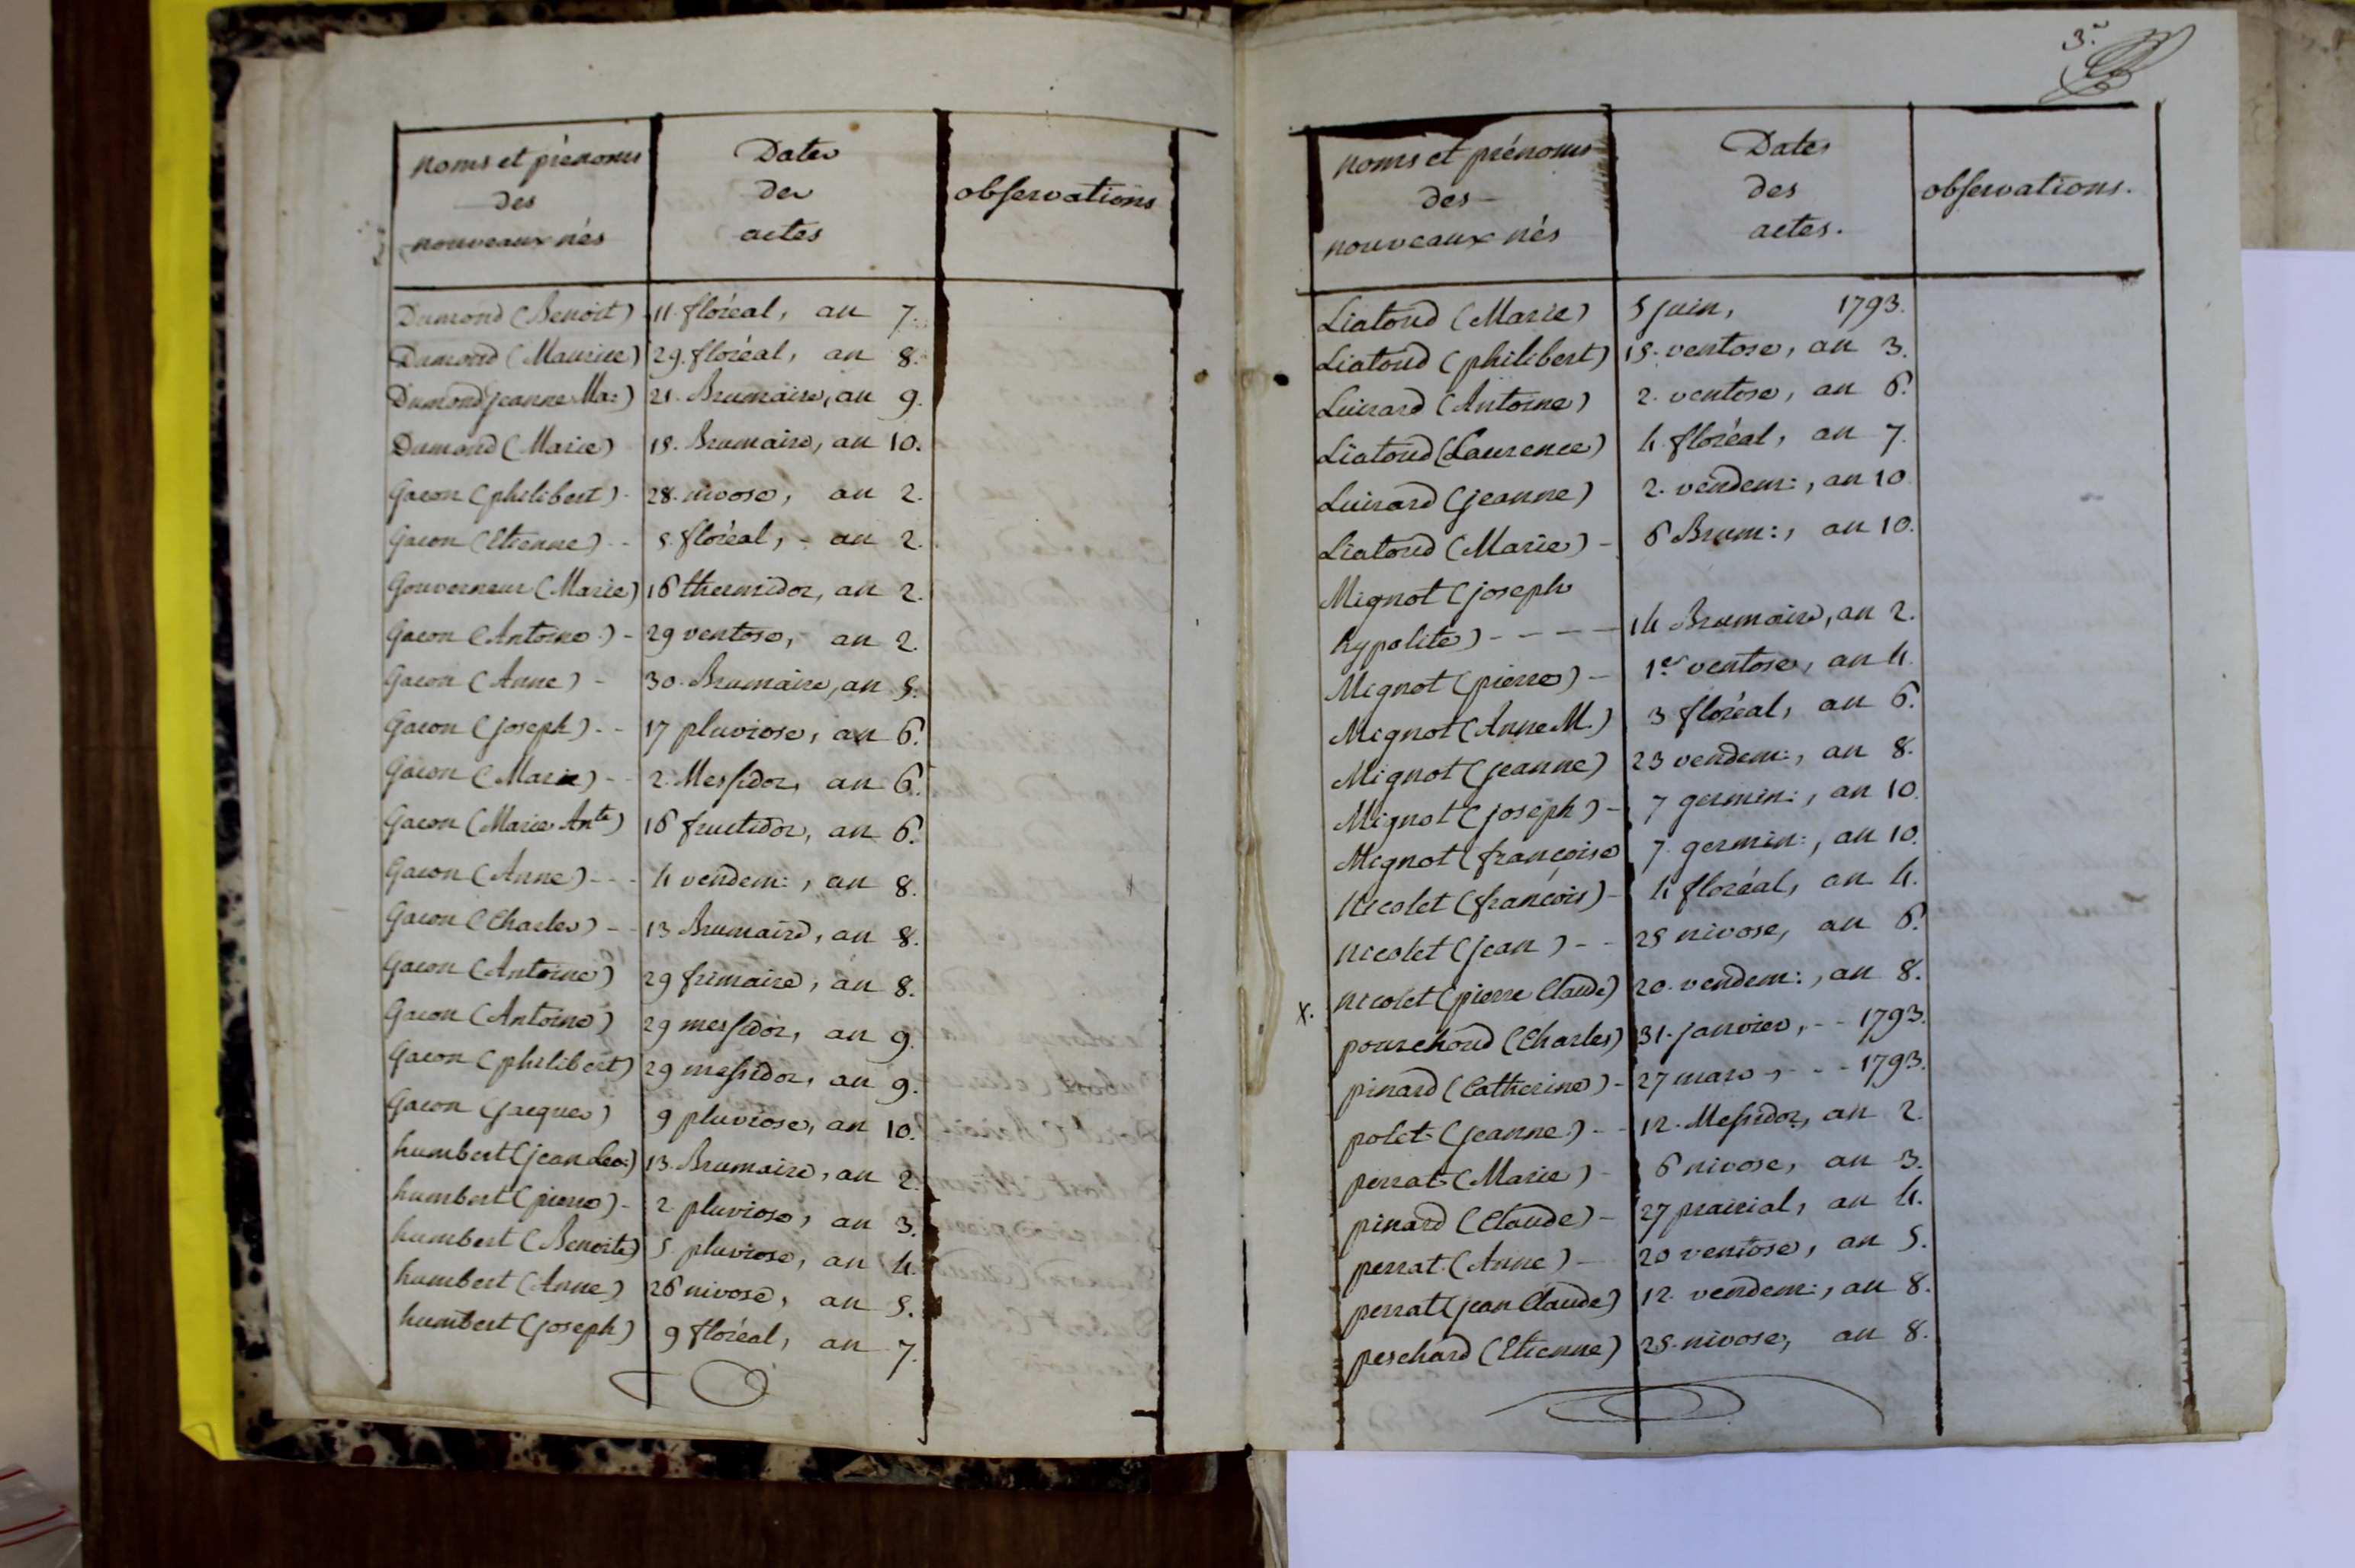 noms et prénoms
des
nouveaux nés
Dates
des
actes
observations
Dumond (Benoit) 11. floréal, an 7.
Dumond (Maurice) 29. floréal, an 8.
Dumond jeanne Ma:) 21. Brumaire, an 9.
Dumond (Marie) 18. Brumaire, an 10.
Gacon (philibert) - 28. nivose, an 2.
Gacon (Etienne) - - 5. floréal, - an 2.
Gouverneur (Marie) 16 thermidor, an 2.
Gacon (Antoine) - 29 ventose, an 2.
Gacon (Anne) - 30. Brumaire, an 5.
Gacon (joseph) - - 17 pluviose, an 6.
Gacon (Marie) - - 2. Messidor, an 6.
Gacon (Marie Ante) 16 fructidor, an 6.
Gacon (Anne) - - - 4 vendem:, an 8.
Gacon (Charles) - - 13 Brumaire, an 8.
Gacon (Antoine) 29 frimaire, an 8.
Gacon (Antoine) 29 messidor, an 9.
Gacon (philibert) 29 messidor, an 9.
Gacon (jacques) 9 pluviose, an 10.
humbert (jean Leo:) 13. Brumaire, an 2.
humbert (pierre) - 2. pluviose, an 3.
humbert (Benoite) 5. pluviose, an 4.
humbert (Anne) 26 nivose, an 5.
humbert (joseph) 9 floréal, an 7.
3.
noms et prénoms
des
nouveaux nés
Dates
des
actes.
observations.
Liatoud (Marie) 5 juin, 1793.
Liatoud (philibert) 15. ventose, an 3.
Luirard (Antoine) 2. ventose, an 6.
Liatoud (Laurence) 4. floréal, an 7.
Luirard (jeanne) 2. vendem:, an 10
Liatoud (Marie) - 6 Brum:, an 10.
Mignot (joseph
hypolite) - - - - 14 Brumaire, an 2.
Mignot (pierre) - 1er ventose, an 4.
Mignot (Anne M.) 3 floréal, an 6.
Mignot (jeanne) 23 vendem:, an 8.
Mignot (joseph) - 7 germin:, an 10.
Mignot (françoise 7. germin:, an 10.
Nicolet (françois) - 4 floréal, an 4.
Nicolet (jean) - - 25 nivose, an 6.
x. Nicolet (pierre Claude) 20. vendem:, an 8.
pourchoud (Charles) 31. janvier, - - 1793.
pinard (Catherine) - 27 mars -, - - - 1793.
polet (jeanne) - - 12. Messidor, an 2.
perrat (Marie) - 6 nivose, an 3.
pinard (Claude) - 27 prairial, an 4.
perrat (Anne) - 20 ventose, an 5.
perrat (jean Claude) 12. vendem:, an 8.
peschard (Etienne) 25. nivose, an 8.